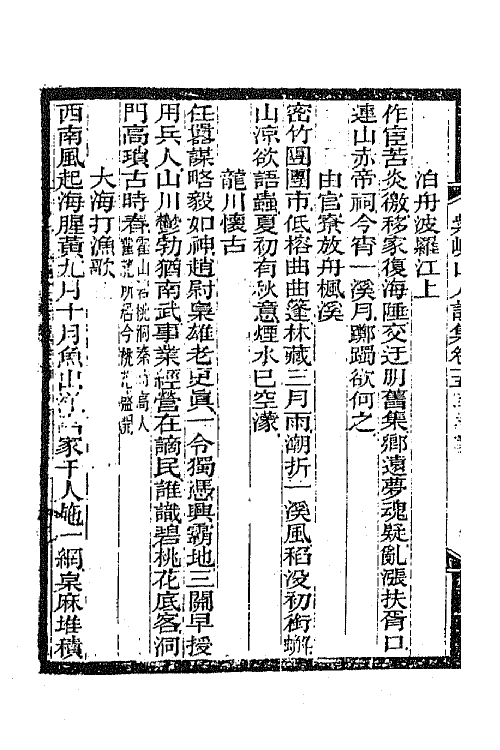 泊舟波羅江上
作宦苦炎徼移家復海陲交迂朋舊集鄉遠夢魂疑亂漲扶胥口
連山赤帝祠今宵一溪月躑躅欲何之
由官寮放舟楓溪
密竹團團市低榕曲曲篷林藏三月雨潮折一溪風稻没初銜蠏
山涼欲語蟲夏初有秋意煙水已空濛
龍川懷古
任囂謀略毅如神趙尉梟雄老更眞一令獨憑興霸地三關早授
用兵人山川鬱勃猶南武事業經營在謫民誰識碧桃花底客洞
門高瑣古時春霍山
大海打漁歌
西南風起海腥黃九月十月魚出 家千人施一網泉麻堆積